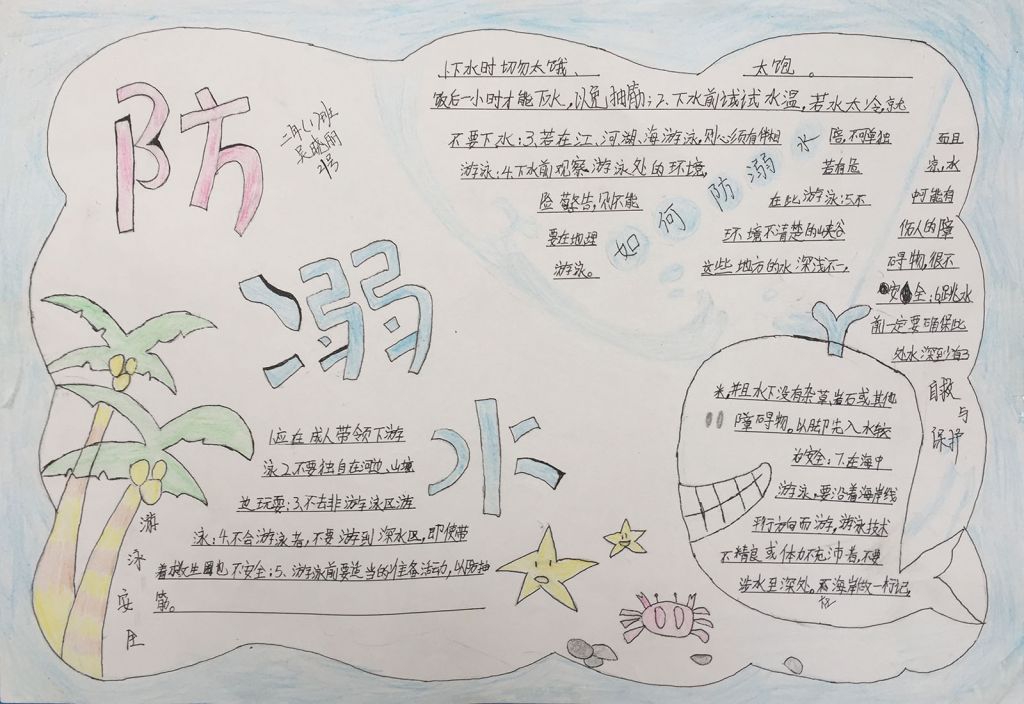 防
溺
水
二年(1)班
吴晓丽
4号
如何防溺水
1.下水时切勿太饿、太饱。
饭后一小时才能下水,以免抽筋;2.下水前试试水温,若水太冷,就
不要下水;3.若在江、河、湖、海游泳,则必须有伴相陪,不可单独
游泳;4.下水前观察游泳处的环境,若有危
险警告,则不能在此游泳;5.不
要在地理环境不清楚的峡谷
游泳。这些地方的水深浅不一,
而且
凉,水
中可能有
伤人的障
碍物,很不
安全;6.跳水
前一定要确保此
处水深至少有3
米,并且水下没有杂草、岩石或其他
障碍物。以脚先入水较
为安全;7.在海中
游泳,要沿着海岸线
平行方向而游,游泳技术
不精良或体力不充沛者,不要
涉水至深处。在海岸做一标记,
自救与保护
1.应在成人带领下游
泳2.不要独自在河边、山塘
边玩耍;3.不去非游泳区游
泳;4.不会游泳者,不要游到深水区,即使带
着救生圈也不安全;5、游泳前要适当的准备活动,以防抽
筋。
游泳安全